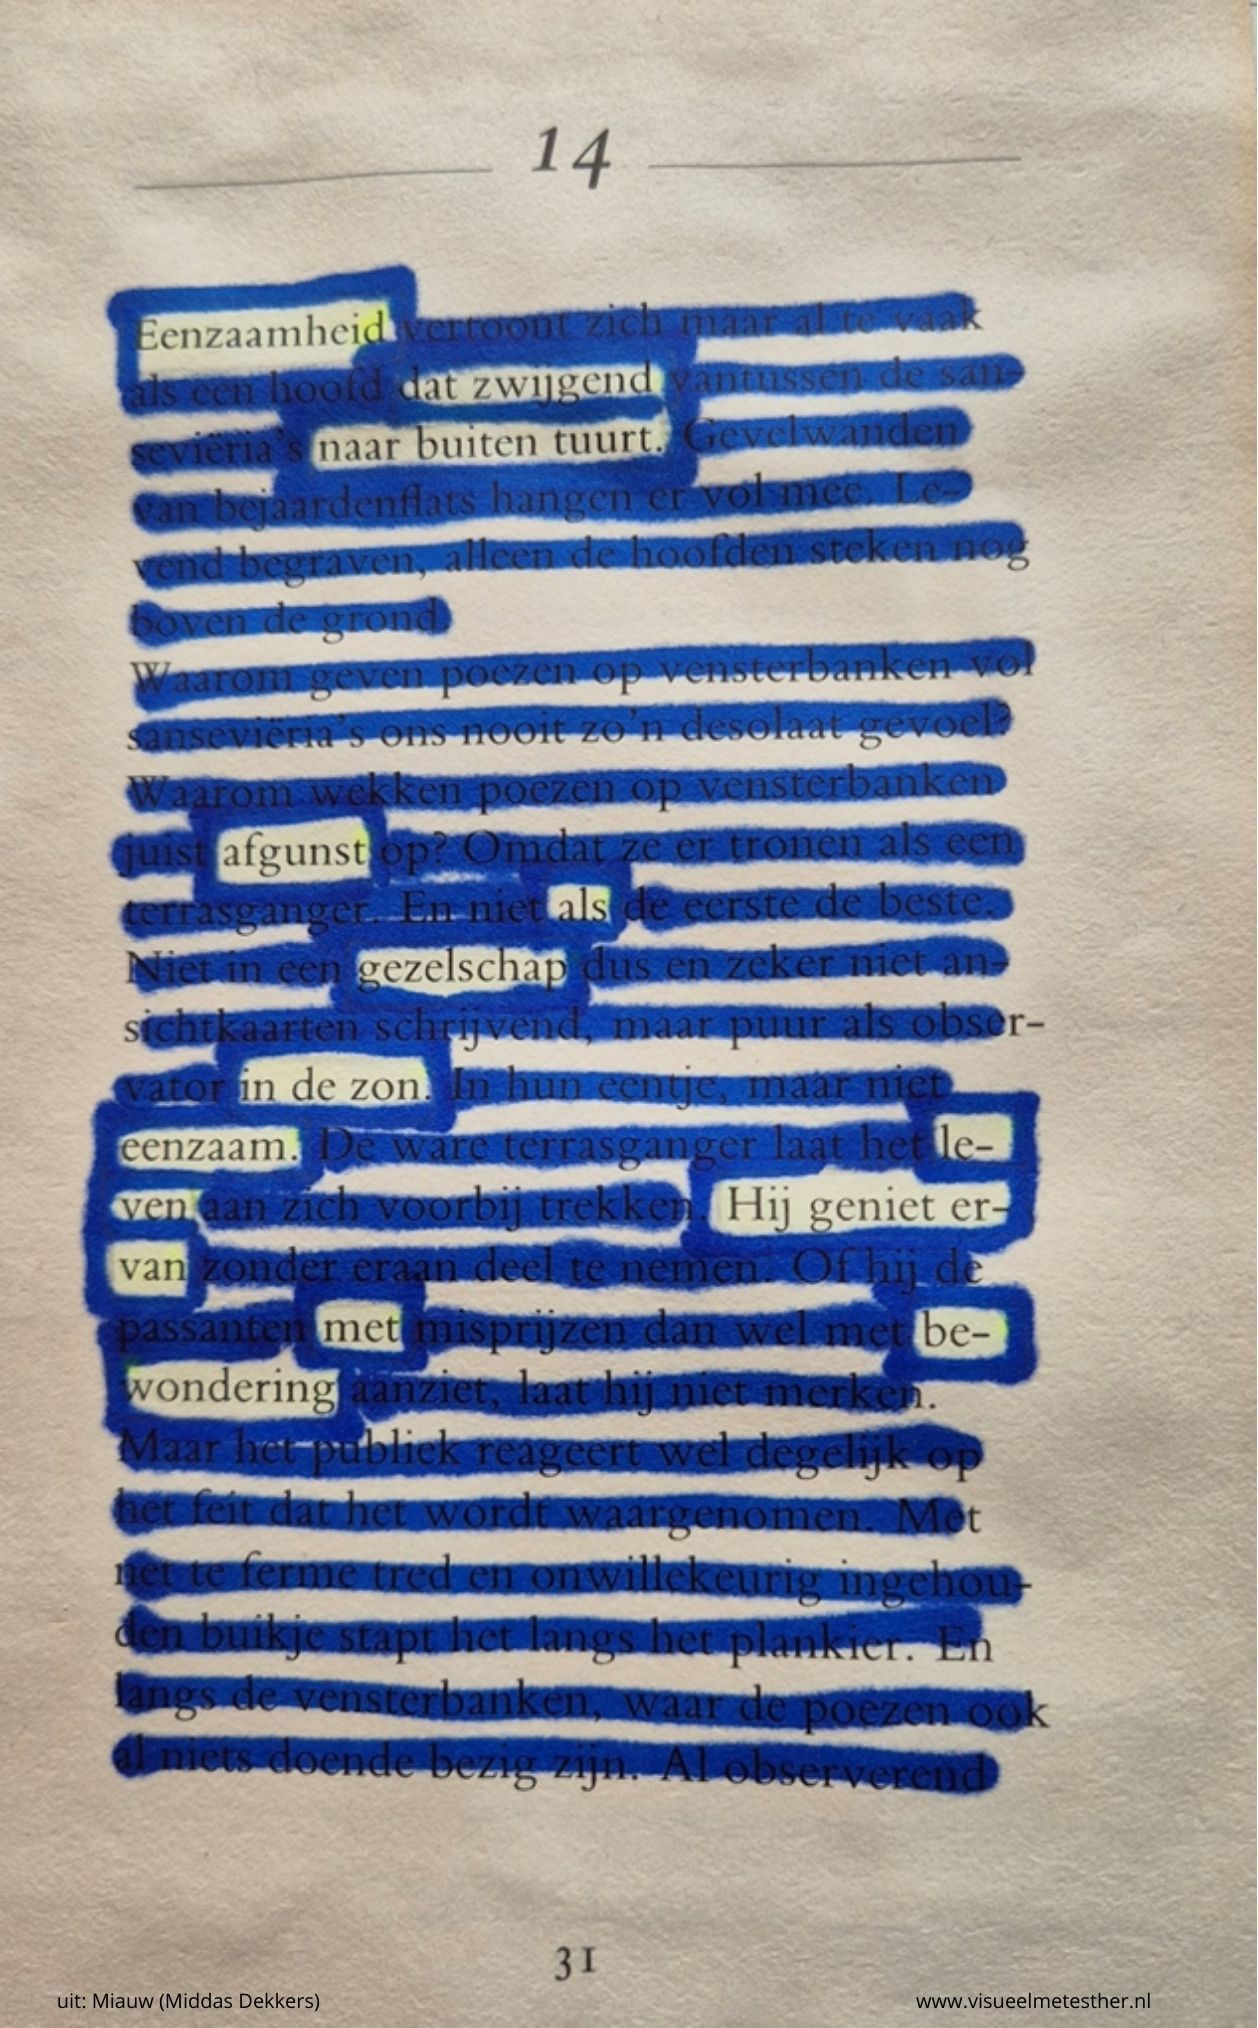 14
Eenzaamheid vertoont zich maar al te vaak
als een hoofd dat zwijgend vantussen de san-
seviëria's naar buiten tuurt. Gevelwanden
van bejaardenflats hangen er vol mee. Le-
vend begraven, alleen de hoofden steken nog
boven de grond.
Waarom geven poezen op vensterbanken vol
sanseviëria's ons nooit zo'n desolaat gevoel?
Waarom wekken poezen op vensterbanken
juist afgunst op? Omdat ze er tronen als een
terrasganger. En niet als de eerste de beste.
Niet in een gezelschap dus en zeker niet an-
sichtkaarten schrijvend, maar puur als obser-
vator in de zon. In hun eentje, maar niet
eenzaam. De ware terrasganger laat het le-
ven aan zich voorbij trekken. Hij geniet er-
van zonder eraan deel te nemen. Of hij de
passanten met misprijzen dan wel met be-
wondering aanziet, laat hij niet merken.
Maar het publiek reageert wel degelijk op
het feit dat het wordt waargenomen. Met
net te ferme tred en onwillekeurig ingehou-
den buikje stapt het langs het plankier. En
langs de vensterbanken, waar de poezen ook
al niets doende bezig zijn. Al observerend
31
uit: Miauw (Middas Dekkers)
www.visueelmetesther.nl